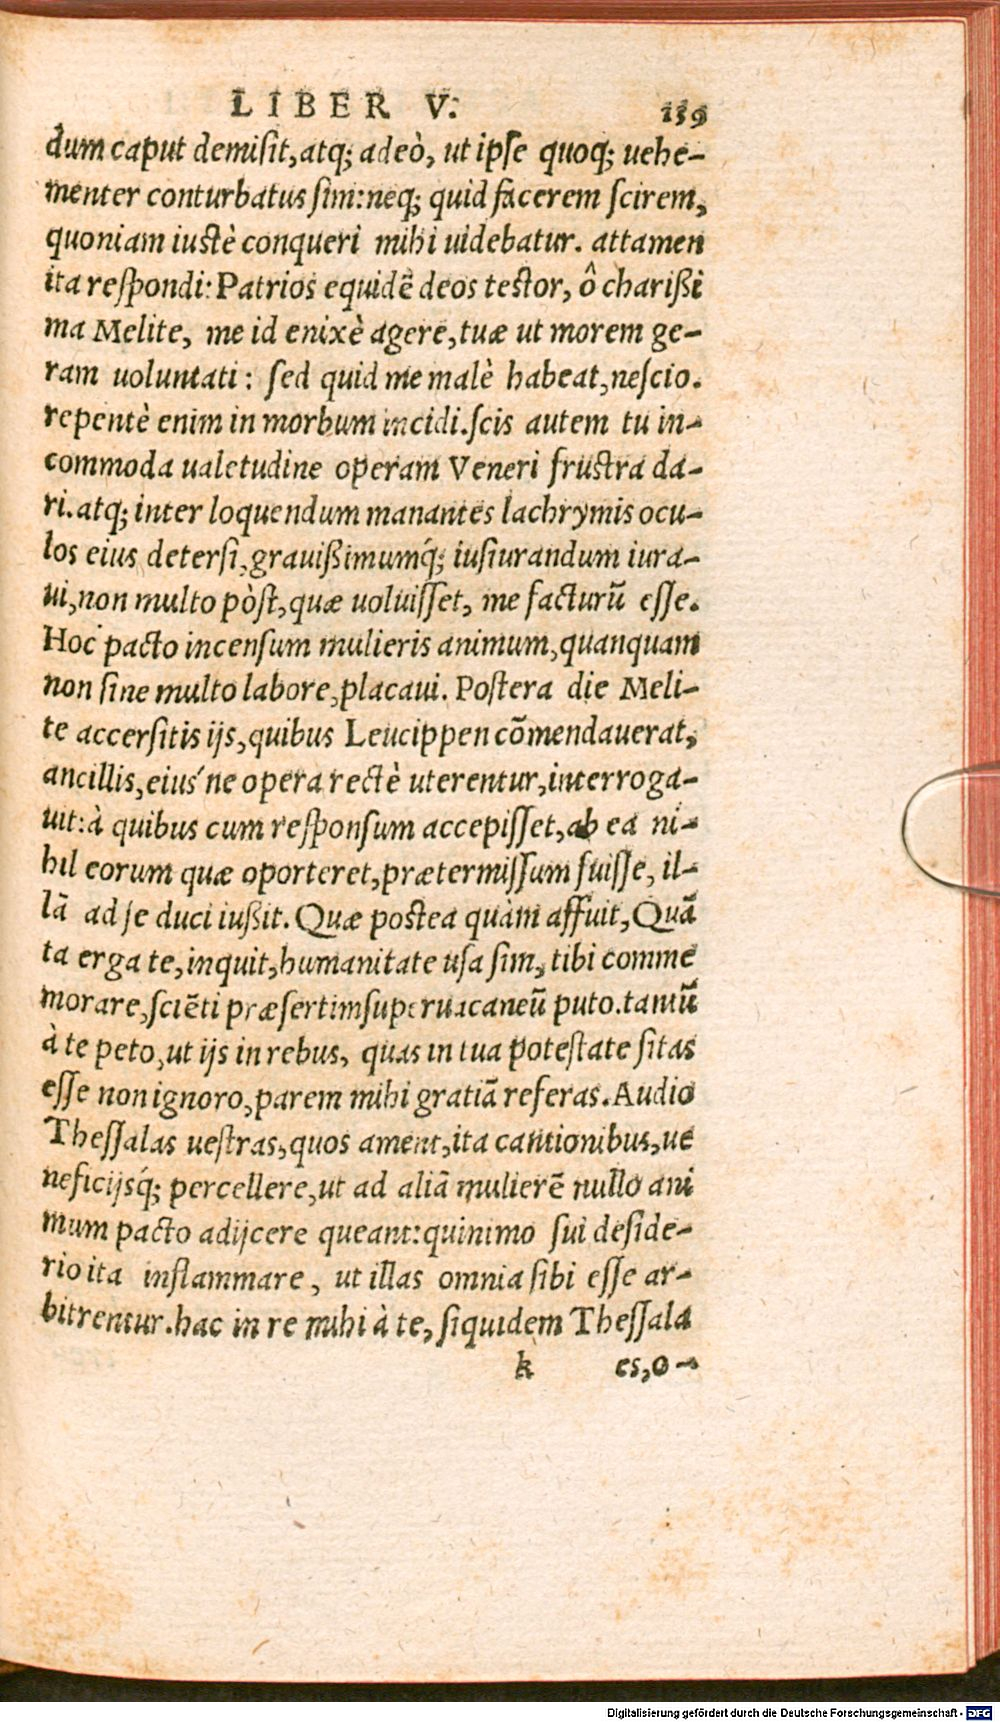 LIBER V. 139
dum caput demisit, atq; adeò, ut ipse quoq; uehe-
menter conturbatus sim: neq; quid facerem scirem,
quoniam iustè conqueri mihi uidebatur. attamen
ita respondi: Patrios equidē deos testor, ô charißi
ma Melite, me id enixè agere, tuæ ut morem ge-
ram uoluntati: sed quid me malè habeat, nescio.
repentè enim in morbum incidi. scis autem tu in-
commoda ualetudine operam Veneri frustra da-
ri. atq; inter loquendum manantes lachrymis ocu-
los eius detersi, grauißimumq́; iusiurandum iura-
ui, non multo pòst, quæ uoluisset, me facturū esse.
Hoc pacto incensum mulieris animum, quanquam
non sine multo labore, placaui. Postera die Meli-
te accersitis ijs, quibus Leucippen cōmendauerat,
ancillis, eius´ne opera rectè uterentur, interroga-
uit: à quibus cum responsum accepisset, ab ea ni-
hil eorum quæ oporteret, prætermissum fuisse, il-
lā ad se duci iußit. Quæ postea quàm affuit, Quā
ta erga te, inquit, humanitate usa sim, tibi comme
morare, sciēti præsertim superuacaneū puto. tantū
à te peto, ut ijs in rebus, quas in tua potestate sitas
esse non ignoro, parem mihi gratiā referas. Audio
Thessalas uestras, quos ament, ita cantionibus, ue
neficijsq́; percellere, ut ad aliā mulierē nullo ani
mum pacto adijcere queant: quinimo sui deside-
rio ita inflammare, ut illas omnia sibi esse ar-
bitrentur. hac in re mihi à te, siquidem Thessala
k es, o-
Digitalisierung gefördert durch die Deutsche Forschungsgemeinschaft - DFG